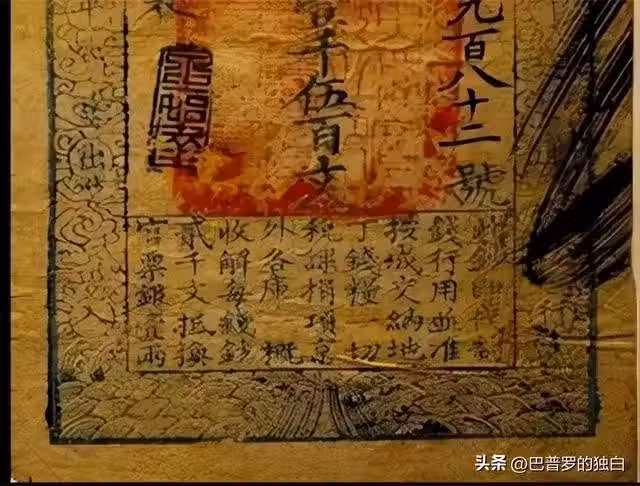 行
百八十二號
千伍百文
此鈔即代制
錢行用並准
按成交納地
丁錢糧一切
稅課捐項京
外各庫一概
收解每錢鈔
貳千文抵換
官票銀壹兩
出入
头条 @巴普罗的独白